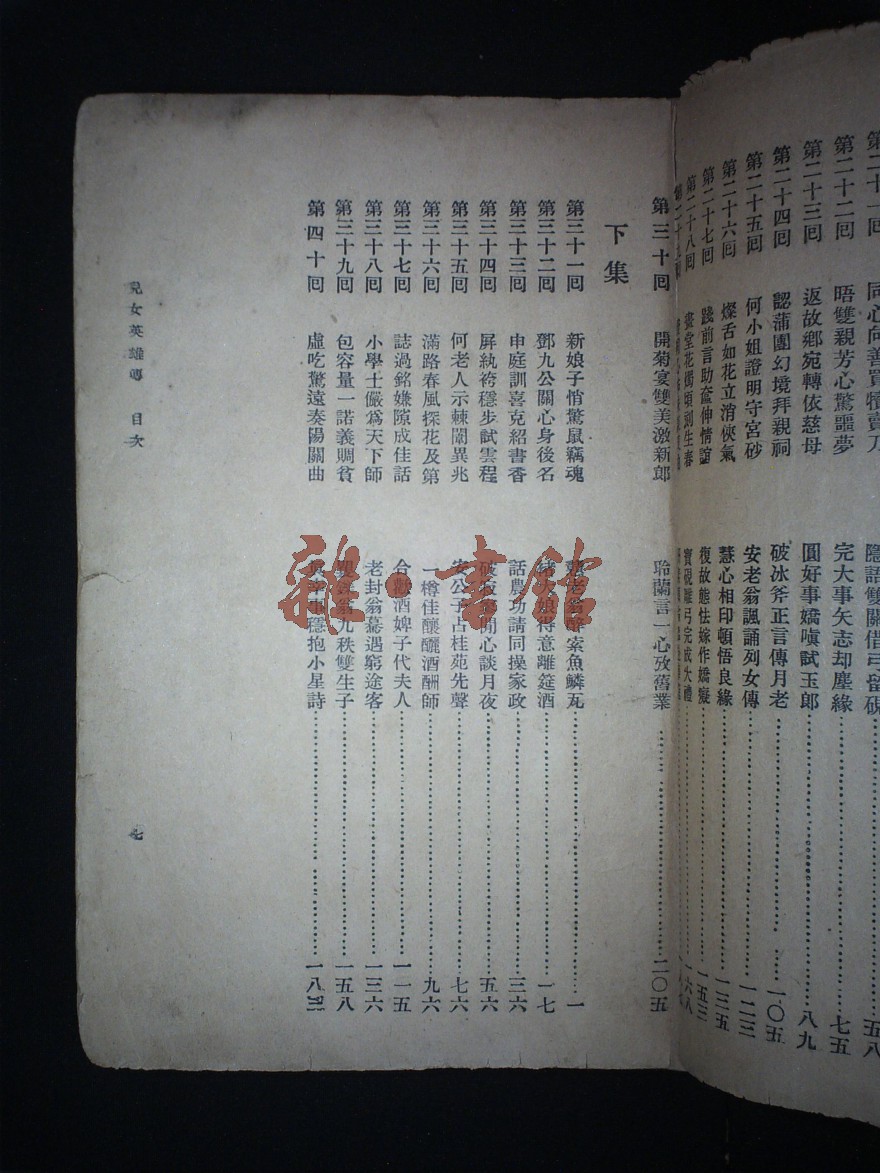 第二十一回 同心向善買犢賣刀 隱語雙關借弓留硯 五八
第二十二回 晤雙親芳心驚噩夢 完大事矢志却塵緣 七五
第二十三回 返故鄉宛轉依慈母 圓好事嬌嗔試玉郎 八九
第二十四回 認蒲團幻境拜親祠 破冰斧正言傳月老 一〇五
第二十五回 何小姐證明守宮砂 安老翁諷誦列女傳 一二三
第二十六回 燦舌如花立消俠氣 慧心相印頓悟良緣 一三五
第二十七回 踐前言助奩伸情誼 復故態怯嫁作嬌癡 一五三
第二十八回 畫堂花燭頃刻生春 寶硯雕弓完成大禮 一六八
第二十九回
第三十回 開菊宴雙美激新郎 聆蘭言一心攷舊業 二〇五
下集
第三十一回 新娘子悄驚鼠竊魂 老翁醉索魚鱗瓦 一
第三十二回 鄧九公關心身後名 娘得意離筵酒 一七
第三十三回 申庭訓喜克紹書香 話農功請同操家政 三六
第三十四回 屏紈袴穩步試雲程 破 閒心談月夜 五六
第三十五回 何老人示棘闈異兆 安公子占桂苑先聲 七六
第三十六回 滿路春風探花及第 一樽佳釀釃酒酬師 九六
第三十七回 誌過銘嫌隙成佳話 合歡酒婢子代夫人 一一五
第三十八回 小學士儼爲天下師 老封翁驀遇窮途客 一三六
第三十九回 包容量一諾義賙貧 翁九秩雙生子 一五八
第四十回 虛吃驚遠奏陽關曲 穩抱小星詩 一八
兒女英雄傳 目次
七
雜·書館